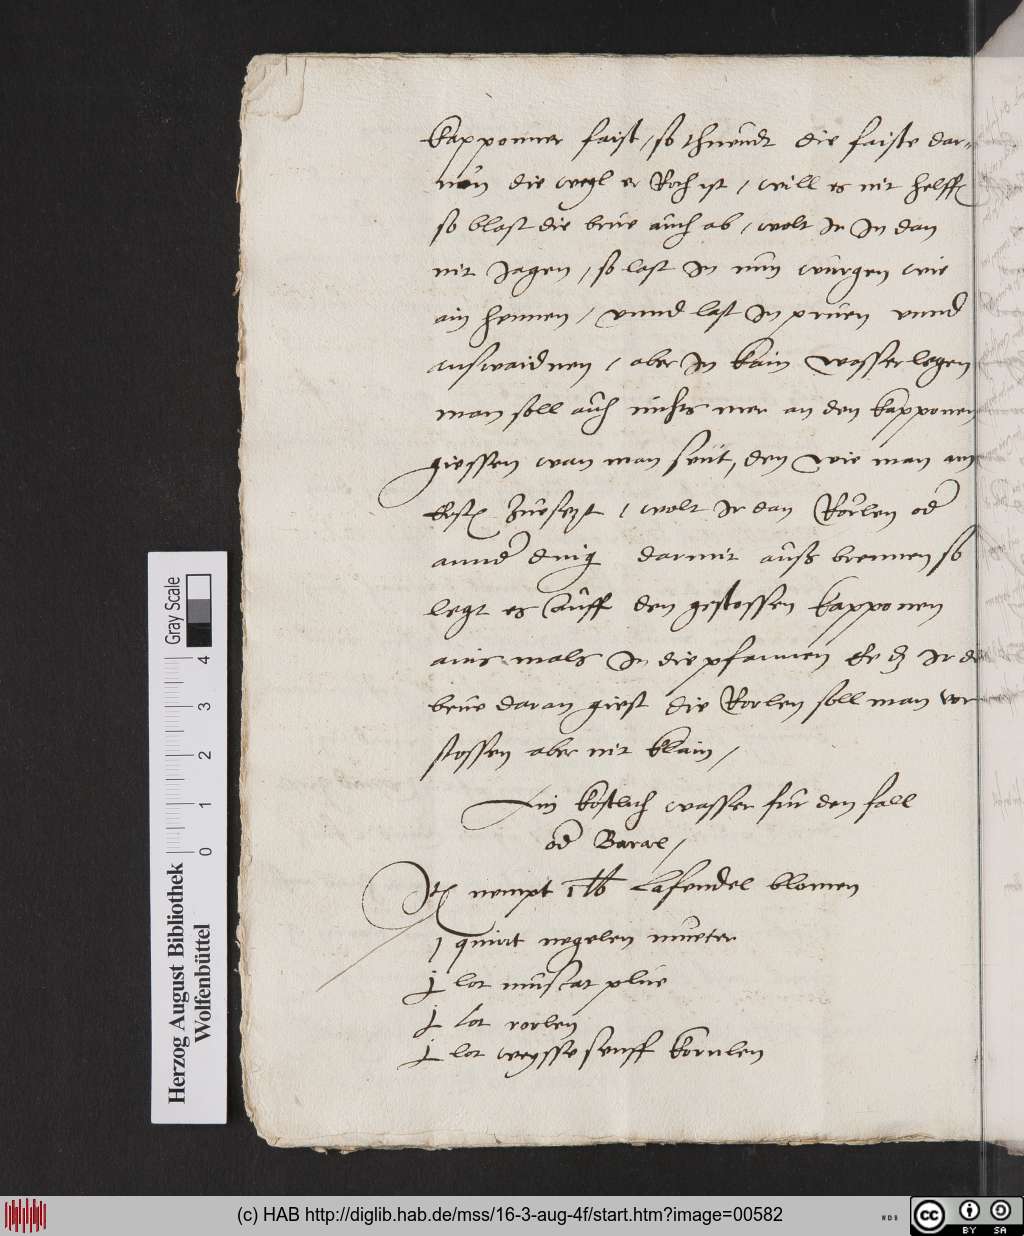 kapponner faist / so thuendt die faiste dar=
nan die weyl er Roch ist / will es nit helffen
so blast die brüe auch ab / wolt Ir In dan
nit Jagen / so last In nun würgen wie
ain hennen / vnnd last In prüen vnnd
auswaidnen / aber In kain wasser legen
man soll auch nichts mer an den kapponen
giessen wan man seüt, den wie man am
Erste Zuesezt / wolt Ir dan Rorlen od
annd ding darmit auß brennen so
legt es auff den gestossen kapponen
ains mals In die pfannen Ee dz Ir die
brüe daran giest die Rorlen soll man vor
stossen aber nit klain /
Ain köstlich wasser für den fall
od Baral /
Ite nempt 1 lb Lafendel blomen
1 quint negelen mueter
1 lot muscat plüe
1 Lot rorlen
1 lot weysse senff kornlen
Herzog August Bibliothek
Wolfenbüttel
Gray Scale
0 1 2 3 4
(c) HAB http://diglib.hab.de/mss/16-3-aug-4f/start.htm?image=00582
WDB
cc BY SA